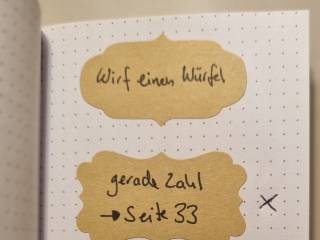 Wirf einen Würfel
gerade Zahl
→ Seite 33
X